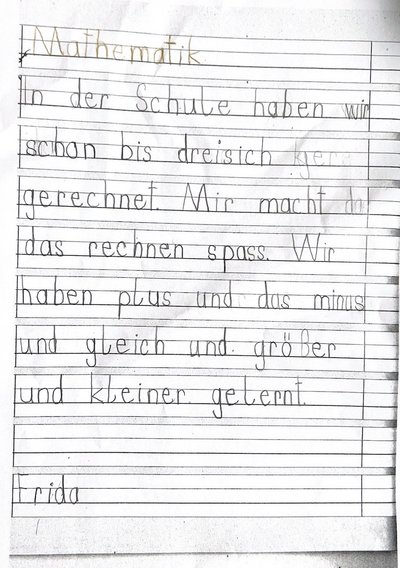 Mathematik
In der Schule haben wir
schon bis dreisich ger
gerechnet. Mir macht da
das rechnen spass. Wir
haben plus und das minus
und gleich und größer
und kleiner gelernt
Frida